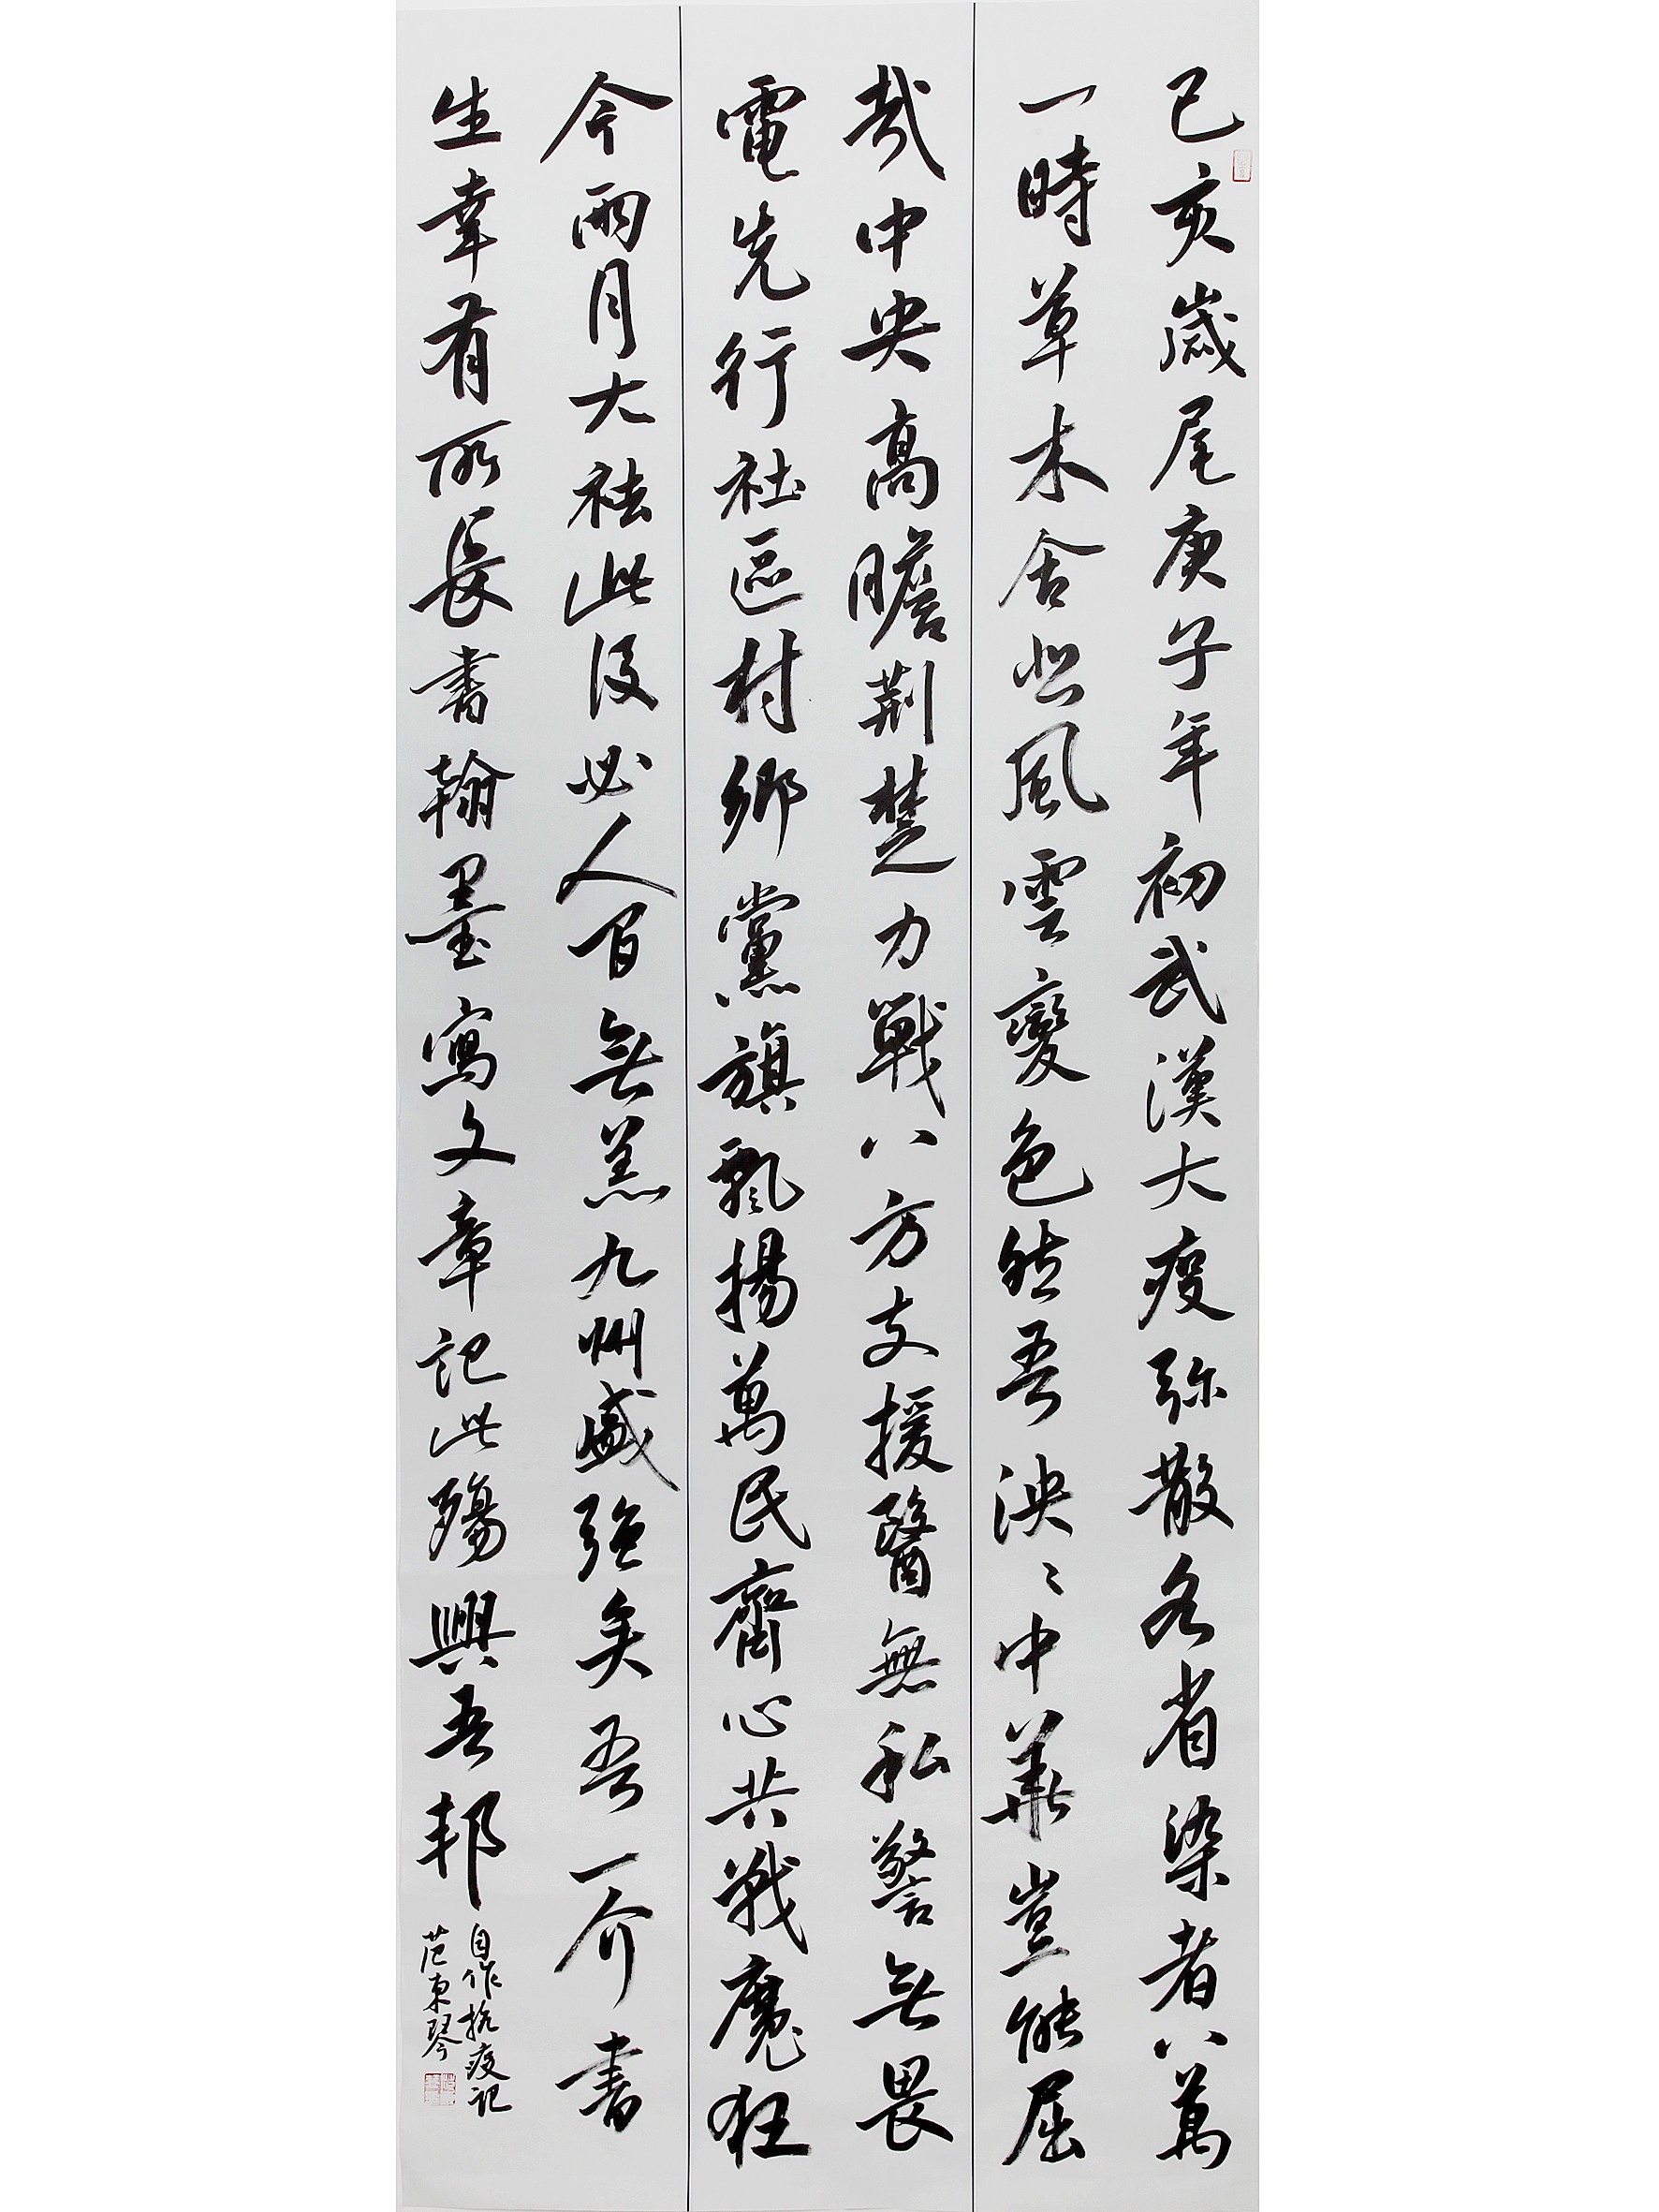 己亥歲尾庚子年初武漢大疫弥散各省染者八萬
一時草木含悲風雲變色然吾泱々中華豈能屈
哉中央高瞻荊楚力戰八方支援醫無私警無畏
電先行社區村鄉黨旗飄揚萬民齊心共戰魔狂
今兩月大祛此役必人百無恙九州盛強矣吾一介書
生幸有所長書翰墨寫文章記此殤興吾邦
自作抗疫記
范東琴